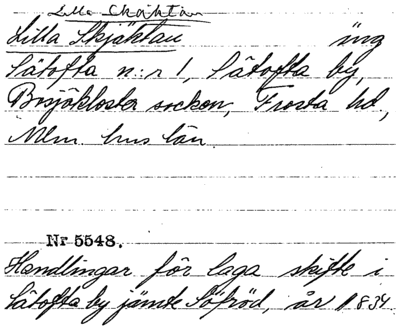 Lilla Skäktan
Lilla Skjäktan äng
Sätofta n:r 1, Sätofta by,
Bosjökloster socken, Frosta hd,
Mlm. hus län
Nr 5548.
Handlingar för laga skifte i
Sätofta by jämte år 1834.